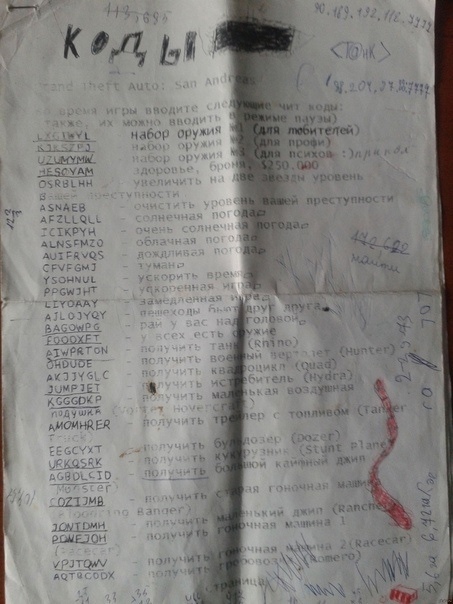 113 1695
90.169.192.118:7777
КОДЫ
<ТаНК>
rand Theft Auto: San Andreas
во время игры вводите следующие чит коды:
также, их можно вводить в режиме паузы)
LXGIWYL - набор оружия №1 (для любителей)
KJKSZPJ - набор оружия №2 (для профи)
UZUMYMW - набор оружия №3 (для психов :)
HESOYAM - здоровье, броня, $250.000
OSRBLHH - увеличить на две звезды уровень
вашей преступности
ASNAEB - очистить уровень вашей преступности
AFZLLQLL - солнечная погода
ICIKPYH - очень солнечная погода
ALNSFMZO - облачная погода
AUIFRVQS - дождливая погода
CFVFGMJ - туман
YSOHNUL - ускорить время
PPGWJHT - ускоренная игра
LIYOAAY - замедленная игра
AJLOJYQY - пешеходы бьют друг друга
BAGOWPG - рай у вас над головой
FOOOXFT - у всех есть оружие
AIWPRTON - получить танк (Rhino)
OHDUDE - получить военный вертолет (Hunter)
AKJJYGLC - получить квадроцикл (Quad)
JUMPJET - получить истребитель (Hydra)
KGGGDKP - получить маленькая воздушная
подушка (Vortex Hovercraft)
AMOMHRER - получить трейлер с топливом (Tanker
Truck)
EEGCYXT - получить бульдозер (Dozer)
URKQSRK - получить кукурузник (Stunt Plane)
AGBDLCID - получить большой каифный джип
(Monster)
CQZIJMB - получить старая гоночная машина
Bloodring Banger)
JQNTDMH - получить маленький джип (Ranche
PDNEJOH - получить гоночная машина 1
(Racecar)
VPJTQWV - получить гоночная машина 2(Racecar)
AQTBCODX - получить гробовозку (Romero)
страница
найти